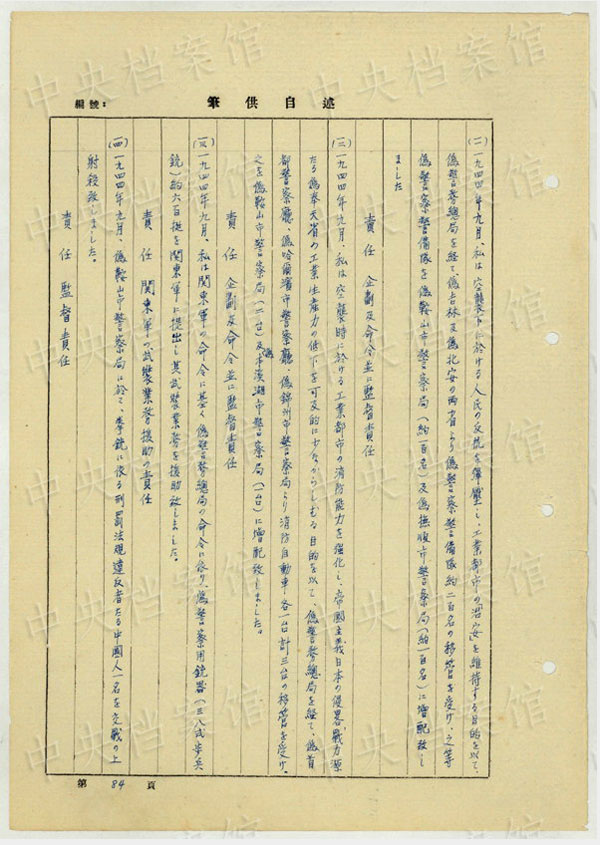 編號:
述自供筆
(二)一九四四年九月、私は空襲下に於ける人民の反抗を彈壓し、工業都市の「治安」を維持する目的を以て、
偽警務總局を経て、偽吉林及偽北安の両省より偽警察警備隊約二百名の移管を受け、之等
偽警察警備隊を偽鞍山市警察局(約一百名)及偽撫順市警察局(約一百名)に増配致し
ました
責任 企劃及命令並に監督責任
(三)一九四四年九月、私は空襲時に於ける工業都市の消防能力を强化し、帝國主義日本の侵畧戰力源
たる偽奉天省の工業生産力の低下を可及的に少なからしむる目的を以て、偽警務總局を経て、偽首
都警察廳、偽哈爾濱市警察廳、偽錦州市警察局より消防自動車各一台計三台の移管を受け、
之を偽鞍山市警察局(二台)及偽本溪湖市警察局(一台)に増配致しました。
責任 企劃及命令並に監督責任
一九四四年九月、私は関東軍の命令に基く偽警務總局の命令に依り、偽警察用銃器(三八式歩兵
銃)約六百挺を関東軍に提出し其武装業務を援助致しました。
責任 関東軍の武装業務援助の責任
一九四四年九月、偽鞍山市警察局に於て、拳銃に依る刑罰法規違反者たる中國人一名を交戰の上
射殺致しました。
責任 監督責任
第 84 頁
中央档案馆